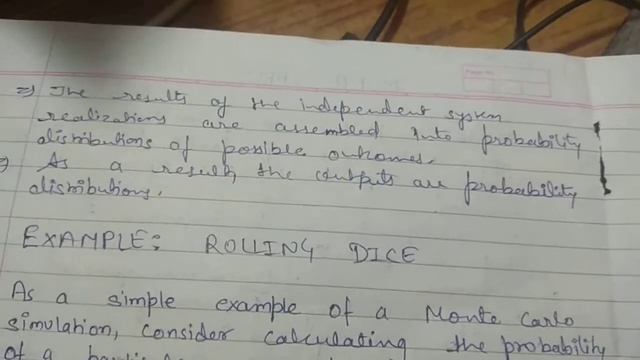 ⇒ The results of the independent system
realizations are assembled into probability
distributions of possible outcomes.
⇒ As a result, the outputs are probability
distributions.
EXAMPLE: ROLLING DICE
As a simple example of a Monte Carlo
simulation, consider calculating the probability
of a